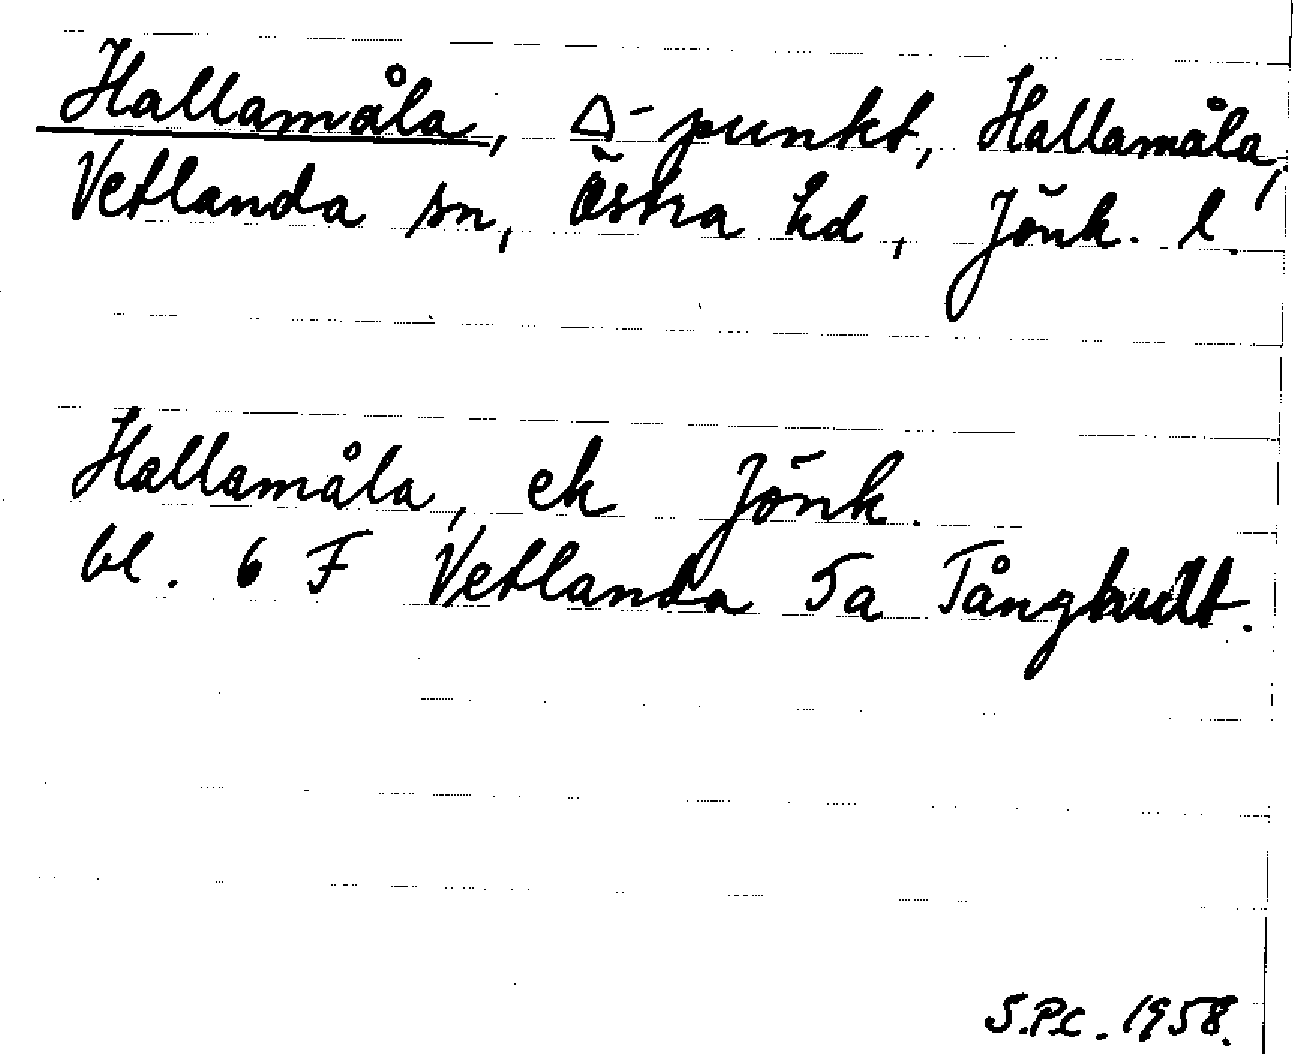 Hallamåla, △-punkt, Hallamåla,
Vetlanda sn, Östra hd, Jönk. l.
Hallamåla, ek Jönk.
bl. 6 F Vetlanda 5a Tånghult.
1958.